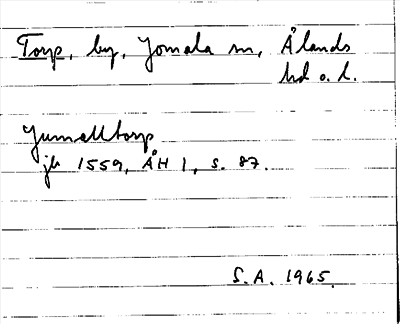 Torp, by, Jomala sn, Ålands
hd o. l.
Jumalltorp
jb 1559, ÅH 1, s. 87.
S.A. 1965.